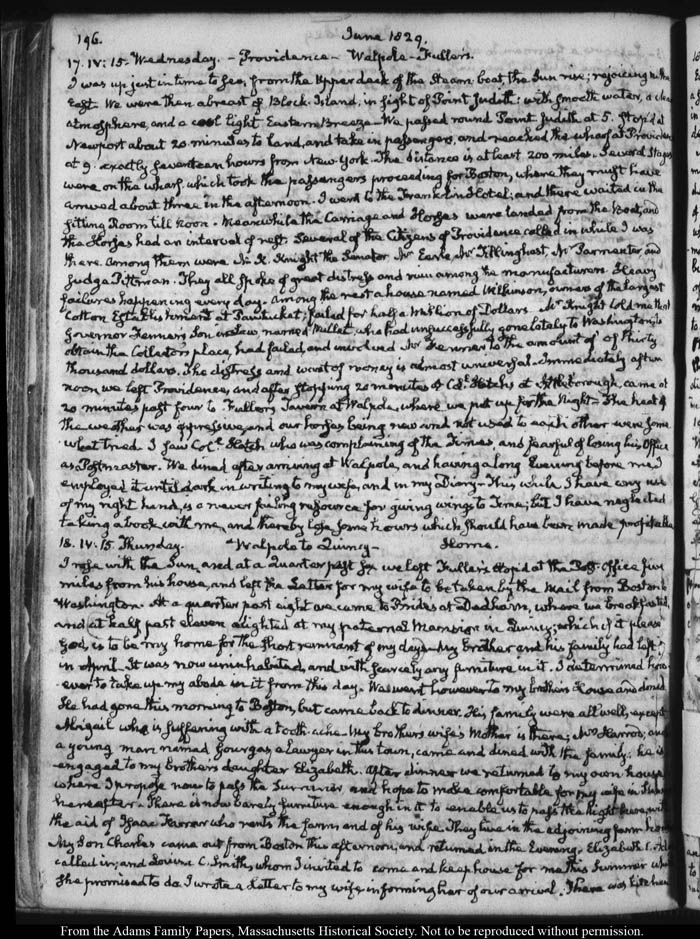 196. June 1829.
17. IV: 15. Wednesday. - Providence - Walpole - Fuller's.
I was up just in time to see, from the Upper deck of the Steam-boat, the Sun rise; rejoicing in the
East. We were then abreast of Block-Island, in sight of Point Judith: with smooth water, a clear
atmosphere, and a cool light Eastern Breeze - We passed round Point Judith at 5. Stop'd at
Newport about 20 minutes to land, and take in passengers, and reached the wharf at Providence
at 9. exactly seventeen hours from New-York. The distance is at least 200 miles. Several Stages
were on the wharf, which took the passengers proceeding for Boston, where they must have
arrived about three in the afternoon. I went to the Franklin Hotel; and there waited in the
sitting Room till noon. Meanwhile the Carriage and Horses were landed from the Boat, and
the Horses had an interval of rest. Several of the Citizens of Providence called in while I was
there. Among them were Mr. N. R. Knight the Senator Mr Earle, Mr Tillinghast, Mr Parmenter and
Judge Pittman. They all spoke of great distress and ruin among the manufacturers. Heavy
failures happening every day - among the rest a house named Wilkinson, owners of the largest
Cotton Establishment at Pawtucket; failed for half a Million of Dollars. Mr Knight told me that
Governor Fenner's Son in law named Mallet, who had unsuccessfully gone lately to Washington, to
obtain the Collector's place, had failed, and involved Mr Fenner to the amount of of thirty
thousand dollars. The distress and want of money is almost universal - Immediately after
noon we left Providence, and after stopping 20 minutes at Coll. Hatch's at Attleborough, came at
20 minutes past four to Fuller's Tavern at Walpole, where we put up for the Night - The heat of
the weather was oppressive, and our horses being new and not used to each other were some
what tried. I saw Coll. Hatch who was complaining of the Times, and fearful of losing his Office
as Postmaster. We dined after arriving at Walpole, and having a long Evening before me, I
employed it until dark in writing to my wife, and in my Diary - This while I have any use
of my right hand, is a never failing resource for giving wings to Time; but I have neglected
taking a book with me, and thereby lose some hours which should have been made profitable
18. IV: 15 Thursday. - Walpole to Quincy - Home.
I rose with the Sun, and at a Quarter past five we left Fuller's. Stop'd at the Post-Office five
miles from his house, and left the Letter for my wife to be taken by the Mail from Boston to
Washington. At a quarter past eight we came to Bride's at Dedham, where we breakfasted,
and at half past eleven alighted at my paternal Mansion in Quincy; which if it please
God, is to be my home for the short remnant of my days - My brother and his family had left it
in April - It was now uninhabited, and with scarcely any furniture in it. I determined how
ever to take up my abode in it from this day. Was went however to my brothers House and dined
He had gone this morning to Boston, but came back to dinner. His family were all well, except
Abigail who is suffering with a tooth-ache. My brother's wife's Mother is there; Mrs Harrod; and
a young man named Gourgas a Lawyer in this town, came and dined with the family: he is
engaged to my brother's daughter Elizabeth. After dinner we returned to my own house
where I propose now to pass the Summer and hope to make comfortable for my wife
hereafter. There is now barely furniture enough in it to enable us to pass the night here, with
the aid of Isaac Farrar who rents the farm and of his wife. They live in the adjoining farm house
My Son Charles came out from Boston this afternoon, and returned in the Evening. Elizabeth C. Adams
called in; and Louisa C. Smith, whom I invited to come and keep house for me this Summer which
she promised to do. I wrote a Letter to my wife informing her of our arrival. There was
From the Adams Family Papers, Massachusetts Historical Society. Not to be reproduced without permission.